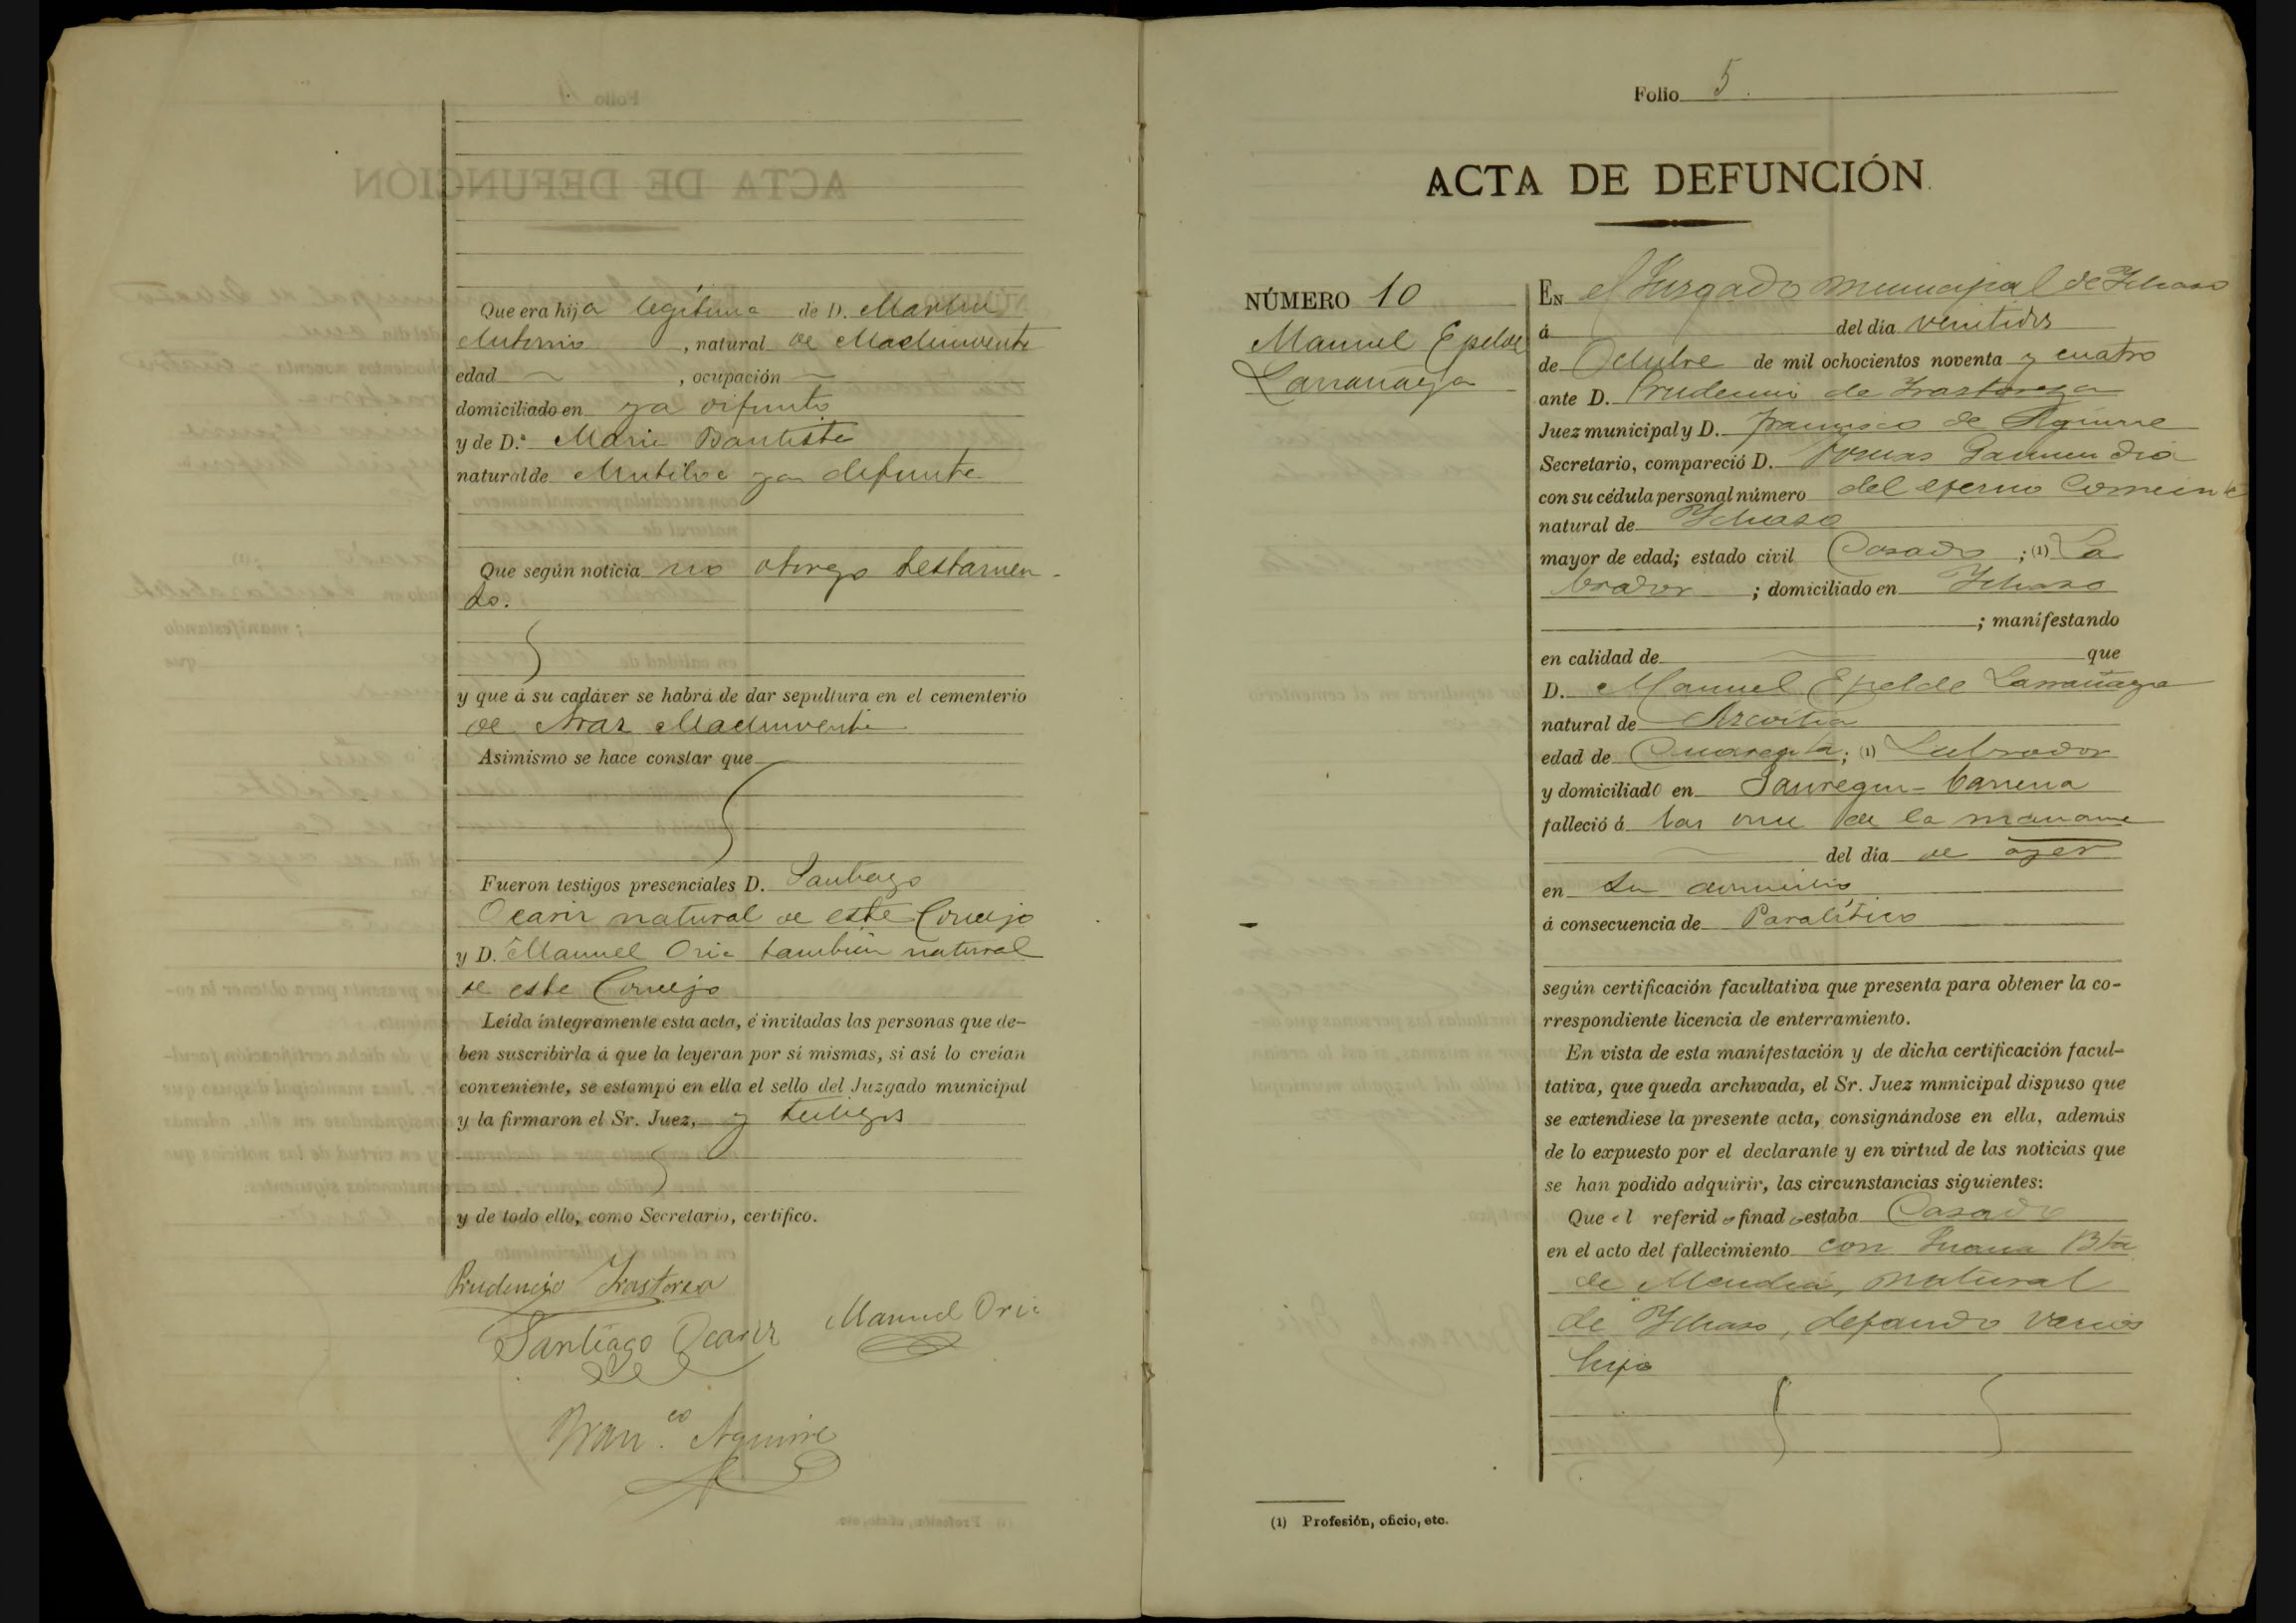 Que era hija legítima de D. Martin
Antonio , natural de Machinventa
edad , ocupación
domiciliado en ya difunto
y de D.ª Maria Bautista
natural de Mutiloa ya defunta
Que según noticia no otorgo testamen-
to.
y que á su cadáver se habrá de dar sepultura en el cementerio
de Machinventa
Asimismo se hace constar que
Fueron testigos presenciales D. Santiago
Ocariz natural de este Concejo
y D. Manuel Oria tambien natural
de este Concejo
Leída íntegramente esta acta, é invitadas las personas que de-
ben suscribirla á que la leyeran por sí mismas, si así lo creían
conveniente, se estampó en ella el sello del Juzgado municipal
y la firmaron el Sr. Juez, y testigos
y de todo ello, como Secretario, certifico.
Prudencio Irastorza
Santiago Ocariz Manuel Oria
Fran.co Aguirre
Folio 5.
ACTA DE DEFUNCIÓN.
NÚMERO 10
Manuel Epelde
Larrañaga
EN el Juzgado municipal de Ichaso
á del día venitidos
de Octubre de mil ochocientos noventa y cuatro
ante D. Prudencio de Irastorza
Juez municipal y D. Francisco de Aguirre
Secretario, compareció D. Garmendia
con su cédula personal número del
natural de Ychaso
mayor de edad; estado civil Casado ; (1) La
brador ; domiciliado en Ichaso
; manifestando
en calidad de que
D. Manuel Epelde Larrañaga
natural de Azcoitia
edad de Cuarenta; (1) Labrador
y domiciliado en Jauregui-barrena
falleció á las once de la manana
del día de ayer
en su domicilio
á consecuencia de Paralítico
según certificación facultativa que presenta para obtener la co-
rrespondiente licencia de enterramiento.
En vista de esta manifestación y de dicha certificación facul-
tativa, que queda archivada, el Sr. Juez municipal dispuso que
se extendiese la presente acta, consignándose en ella, además
de lo expuesto por el declarante y en virtud de las noticias que
se han podido adquirir, las circunstancias siguientes:
Que el referido finado estaba Casado
en el acto del fallecimiento con Juana Bta
de Mendia, natural
de Ychaso, dejando varios
hijos
(1) Profesión, oficio, etc.